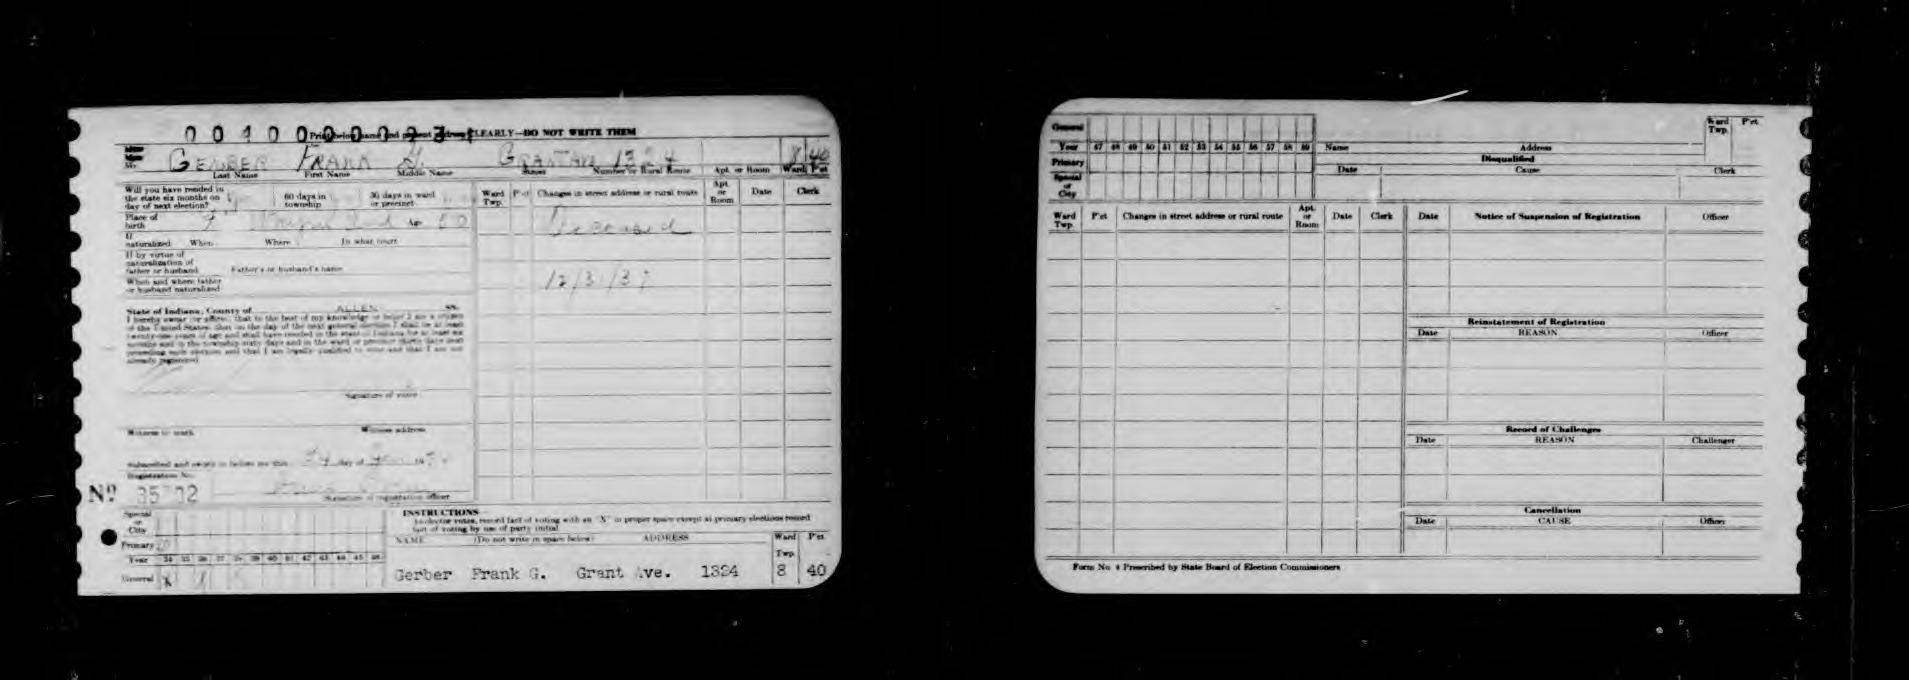 0010000027
Print below name and present address CLEARLY—DO NOT WRITE THEM
GERBER FRANK G. GRANT AVE 1324 8 40
Last Name First Name Middle Name Street Number or Rural Route Apt. or Room Ward P'ct
Will you have resided in the state six months on day of next election? 60 days in township 30 days in ward or precinct
Place of birth Ft Wayne Ind Age 60
If naturalized When Where In what court
If by virtue of naturalization of father or husband Father's or husband's name
When and where father or husband naturalized
State of Indiana, County of ALLEN SS.
I hereby swear (or affirm) that to the best of my knowledge or belief I am a citizen
of the United States; that on the day of the next general election I shall be at least
twenty-one years of age and shall have resided in the state of Indiana for at least six
months and in the township sixty days and in the ward or precinct thirty days next
preceding such election and that I am legally qualified to vote and that I am not
already registered
Signature of voter
Witness to mark Witness address
Subscribed and sworn to before me this day of 19
Registration No.
Nº
Signature of registration officer
Ward Twp. P'ct Changes in street address or rural route Apt. or Room Date Clerk
Deceased
12/31/37
Special or City
Primary
Year 34 35 36 37 38 39 40 41 42 43 44 45 46
General X X
INSTRUCTIONS
As elector votes, record fact of voting with an "X" in proper space except at primary elections record
fact of voting by use of party initial
NAME (Do not write in space below) ADDRESS Ward Twp. P'ct
Gerber Frank G. Grant Ave. 1324 8 40
General
Year 47 48 49 50 51 52 53 54 55 56 57 58 59
Primary
Special or City
Ward Twp. P'ct
Name Address
Disqualified
Date Cause Clerk
Ward Twp. P'ct Changes in street address or rural route Apt. or Room Date Clerk
Date Notice of Suspension of Registration Officer
Reinstatement of Registration
Date REASON Officer
Record of Challenges
Date REASON Challenger
Cancellation
Date CAUSE Officer
Form No. 4 Prescribed by State Board of Election Commissioners